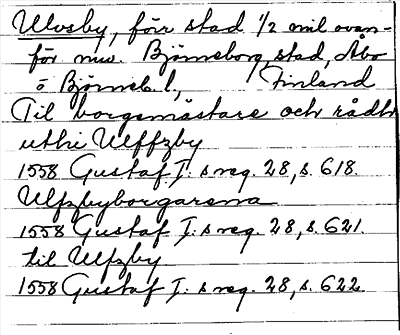 Ulvsby, förr stad 1/2 mil ovan-
för nuv. Björneborg stad, Åbo
o Björneb. l., Finland
Til borgemästare och rådh
uthi Ulffzby
1558 Gustaf I: s reg. 28, s. 618.
Ulfzbyborgarena
1558 Gustaf I: s reg. 28, s. 621.
til Ulfzby
1558 Gustaf I: s reg. 28, s. 622.